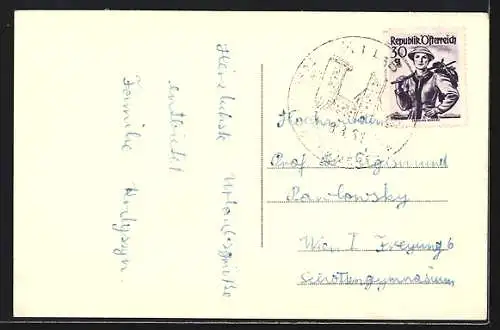 Herzlichste Urlaubsgrüße
entbietet
Familie
Republik Österreich
30
g
Hochwürden
Prof. Dr. Sigismund
Pawlowsky
Wien I Freyung 6
Schottengymnasium